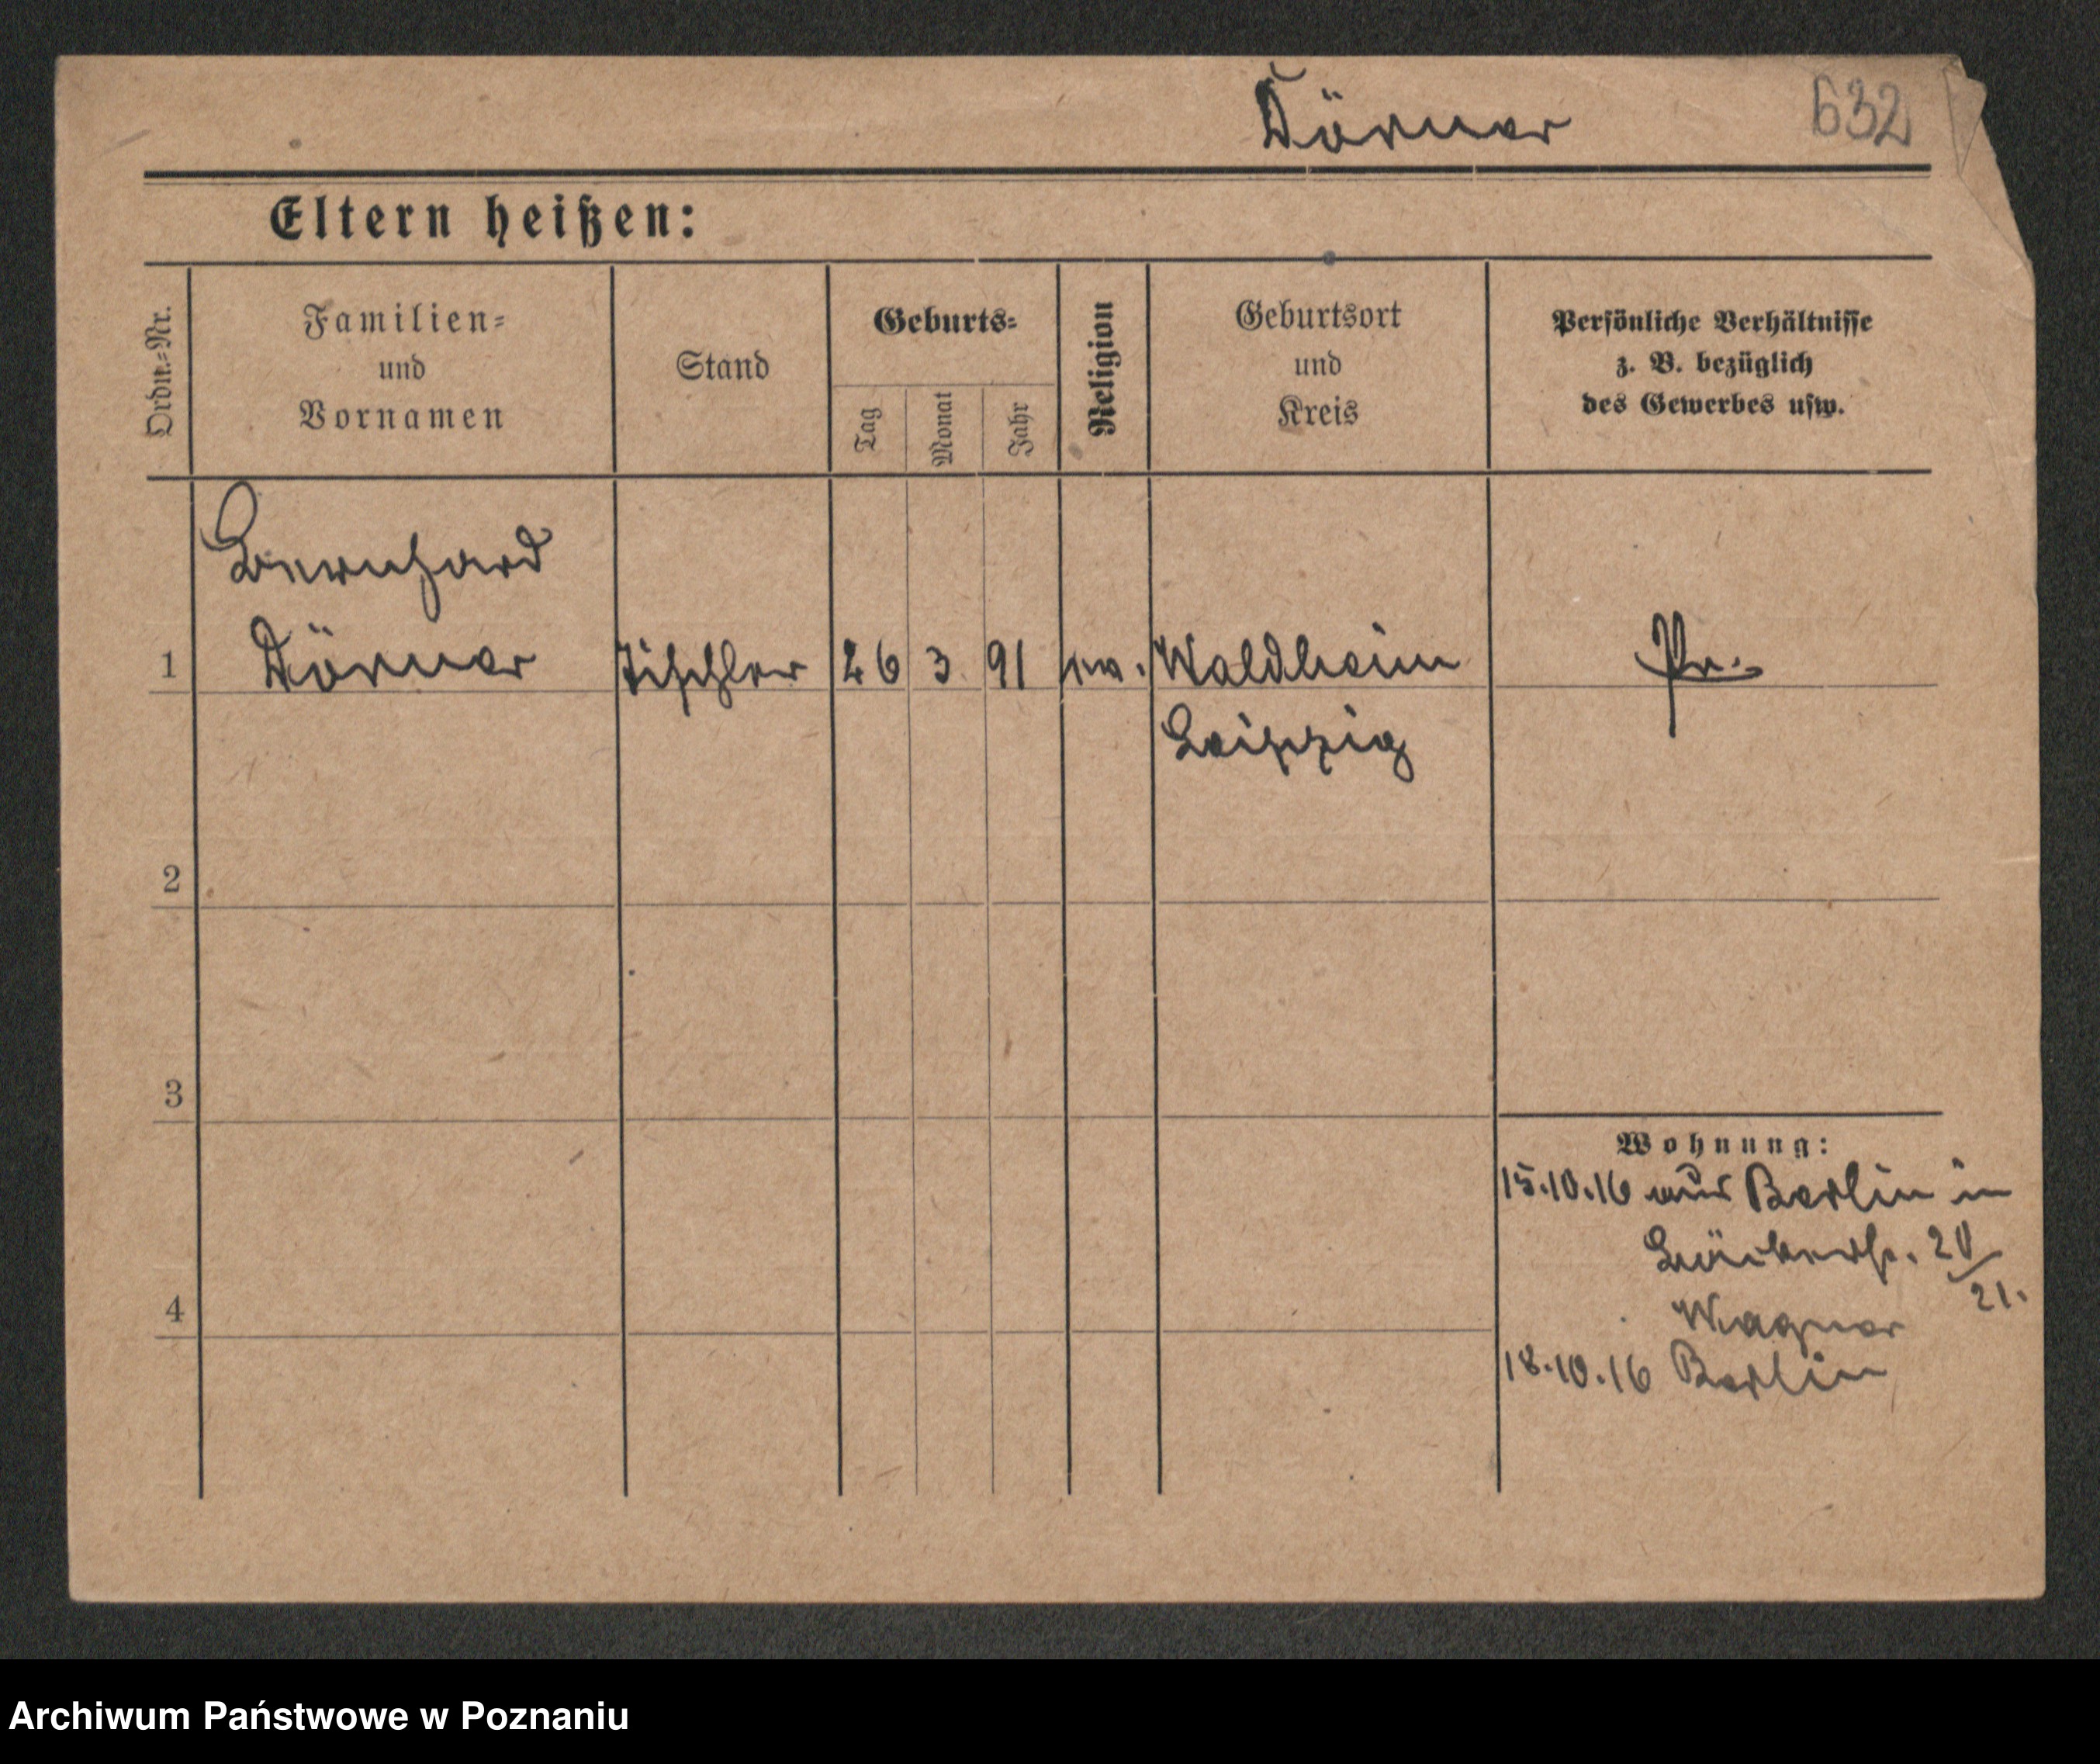 Dörner
632
Eltern heißen:
Ordn.-Nr.
Familien-
und
Vornamen
Stand
Geburts-
Tag
Monat
Jahr
Religion
Geburtsort
und
Kreis
Persönliche Verhältnisse
z. B. bezüglich
des Gewerbes usw.
Bernhard
1 Dörner Tischler 26 3 91 ev. Waldheim Pr.
Leipzig
2
3
Wohnung:
15.10.16 aus Berlin in
Bäckerstr. 20/21.
4
Wagner
18.10.16 Berlin
Archiwum Państwowe w Poznaniu